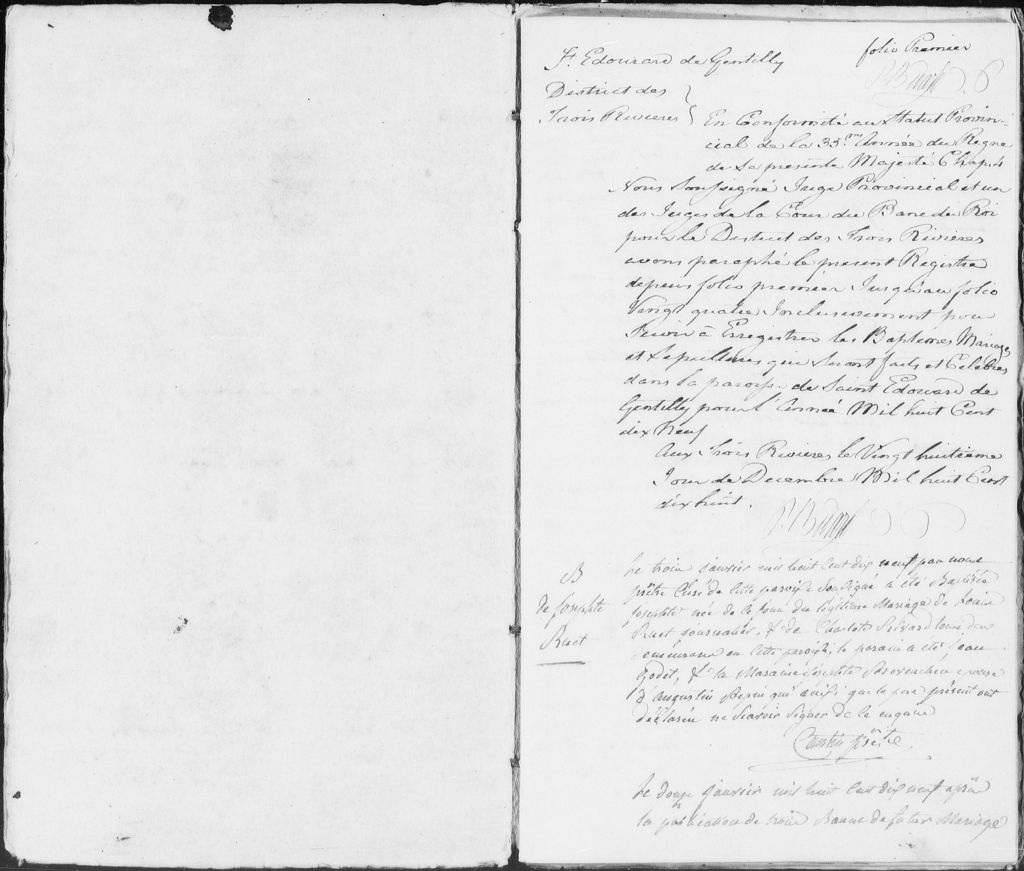 folio Premier
St Edouard de Gentilly
District des
Trois Rivieres
En Conformité au Statut Provin-
cial de la 35me Année du Regne
de Sa presente Majesté Chapre
Nous Soussigné Juge Provincial et un
des Juges de la Cour du Banc du Roi
pour le District des Trois Rivieres
avons paraphé le present Registre
depuis folio premier Jusqu'au folio
Vingt quatre Inclusivement pour
Servir à Enregistrer les Baptemes Mariages
et Sepultures qui Seront faits et Celebres
dans la paroisse de Saint Edouard de
Gentilly pour l'Année Mil huit Cent
dix Neuf
Aux Trois Rivieres le Vingt huitieme
Jour de Decembre Mil huit Cent
dix huit.
B
de Josephte
Ruet
Le trois Janvier mil huit Cent dix neuf par nous
prêtre Curé de Cette paroisse Soussigné a été Baptisée
Josephte née de le jour du légitime Mariage de Louis
Ruet Journalier, & de Charlote Rivard tous deux
demeurans en Cette paroisse, le parain a été Jean
Godet, & la Maraine Josephte Provencher épouse
d'Augustin Pepin qui ainsi que le pere présent ont
déclarés ne Scavoir Signer de le enquis
prêtre
Le douze Janvier mil huit Cent dix neuf après
la publication de trois Bancs de futur Mariage